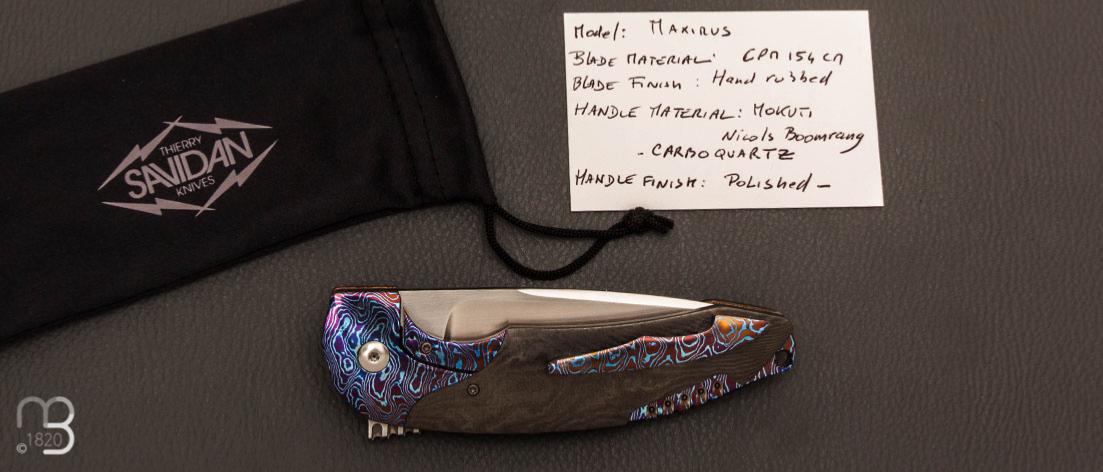 THIERRY
SAVIDAN
KNIVES
Model: MAXIRUS
BLADE MATERIAL: CPM 154 CM
BLADE FINISH : Hand rubbed
HANDLE MATERIAL: MOKUTI
Nicols Boomrang
- CARBOQUARTZ
HANDLE FINISH: Polished -
MB
©1820